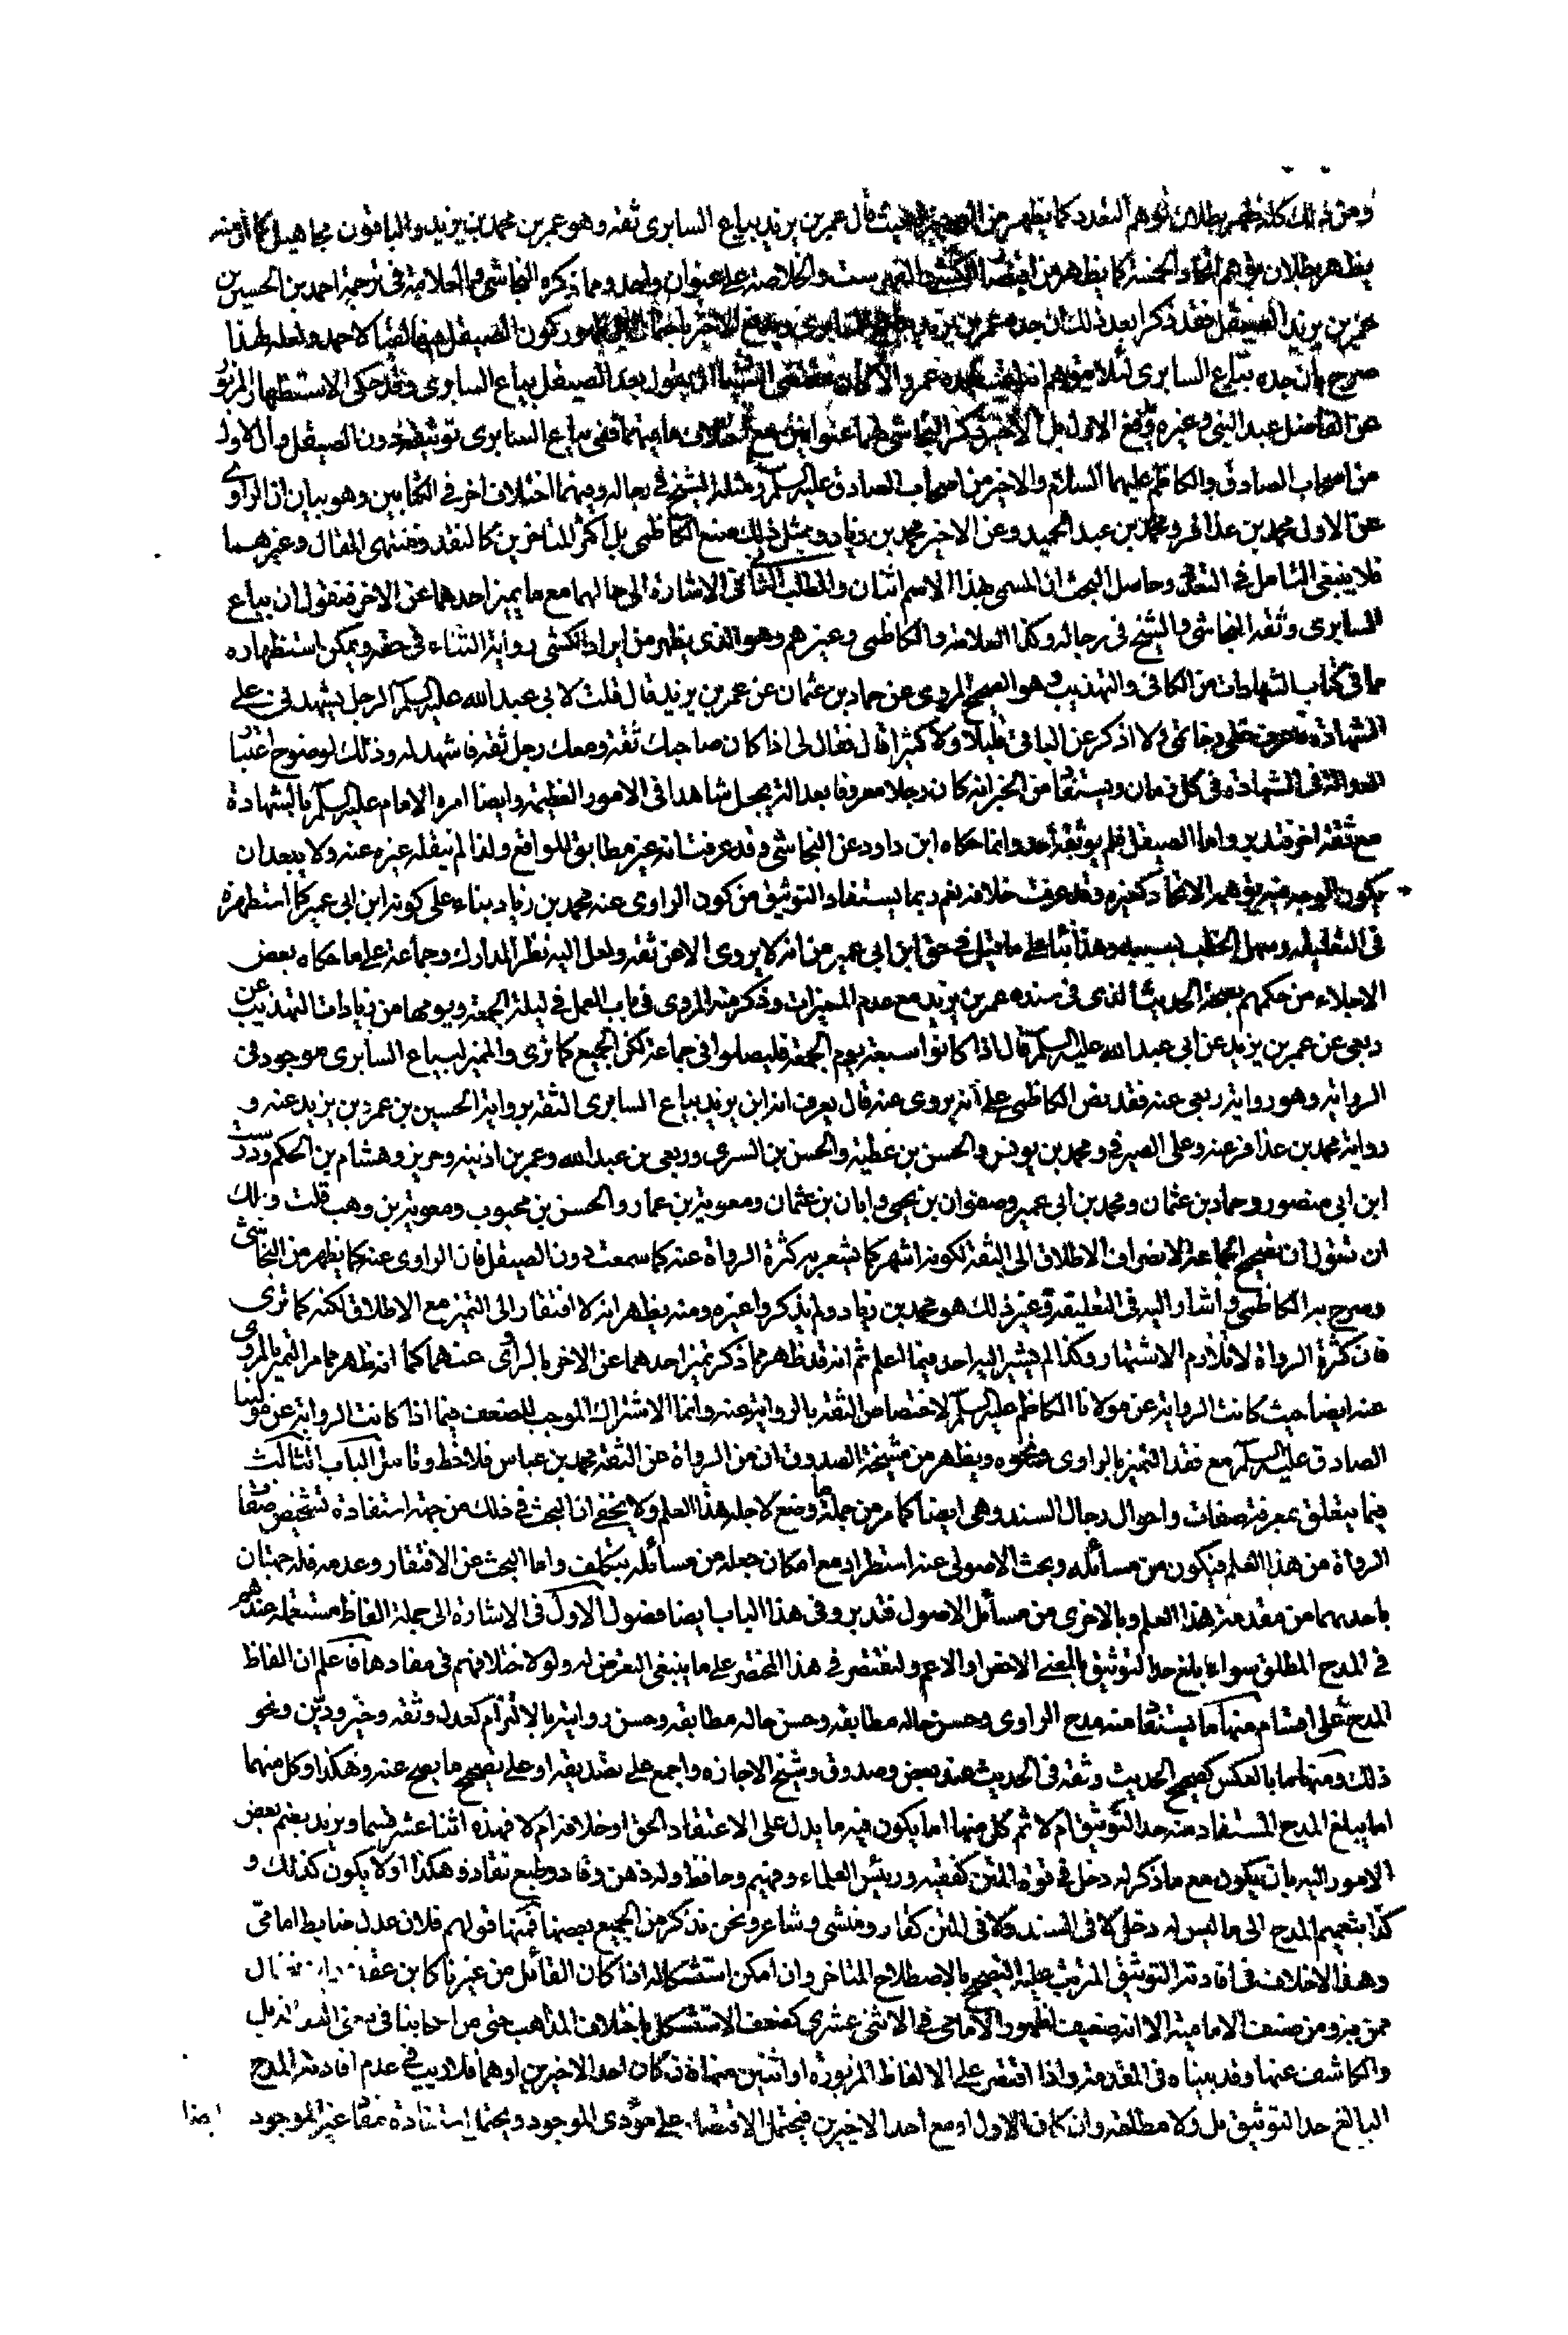 ومن ذلك كله ظهر بطلان توهم التعدد كما يظهر من حيث قال عمر بن يزيد بياع السابرى ثقة وهو عمر بن محمد بن يزيد والباقون مجاهيل كما انه منه
يظهر بطلان توهم اتحاد الخمسة كما يظهر من اقتصار الفهرست والخلاصة على عنوان واحد ومما ذكره النجاشى والعلامة فى ترجمة احمد بن الحسين بن
عمر بن يزيد الصيقل فقد ذكرا بعد ذلك ان جده عمر بن يزيد بياع السابرى كون الصيقل لقبا لاحمد ولعله لهذا
صرح بان جده بياع السابرى لئلا يتوهم عمر والا كان مقتضى ان يقول بعد الصيقل بياع السابرى وقد حكى الاستظهار المزبور
عن الفاضل عبد النبى وغيره ذكر النجاشى لهما عنوانين مع اختلاف ما بينهما ففى بياع السابرى توثيقه دون الصيقل وان الاول
من اصحاب الصادق والكاظم عليهما السلام والاخير من اصحاب الصادق عليه السلم ومثله الشيخ فى رجاله وبينهما اختلاف اخر فى الكتابين وهو بيان ان الراوى
عن الاول محمد بن عذافر ومحمد بن عبد الحميد وعن الاخير محمد بن زياد وبمثل ذلك صنع الكاظمى بل اكثر المتاخرين كالنقد ومنتهى المقال وغيرهما
فلا ينبغى التامل فى التعدد وحاصل البحث ان المسمى بهذا الاسم اثنان والمطلب الثانى فى الاشارة الى حالهما مع ما يميز احدهما عن الاخر فنقول ان بياع
السابرى وثقه النجاشى والشيخ فى رجاله وكذا العلامة والكاظمى وغيرهم وهو الذى يظهر من ايراد الكشى رواية الثناء فى حقه ويمكن استظهاره
مما فى كتاب الشهادات من الكافى والتهذيب وهو الصحيح المروى عن حماد بن عثمان عن عمر بن يزيد قال قلت لابى عبد الله عليه السلم الرجل يشهدنى على
الشهادة فاعرف خطى وخاتمى ولا اذكر عن الباقى قليلا ولا كثيرا قال فقال لى اذا كان صاحبك ثقة ومعك رجل ثقة فاشهد له وذلك لوضوح اعتبار
العدالة فى الشهادة فى كل زمان ويستفاد من الخبر انه كان رجلا معروفا بعدالته يجعل شاهدا فى الامور العظيمة وايضا امره الامام عليه السلم بالشهادة
مع ثقة اخر فتدبر واما الصيقل فلم يوثقه احد وانما حكاه ابن داود عن النجاشى وقد عرفت انه غير مطابق للواقع ولذا لم ينقله غيره عنه ولا يبعد ان
يكون الوجه فيه توهم الاتحاد كغيره وقد عرفت خلافه نعم ربما يستفاد التوثيق من كون الراوى عنه محمد بن زياد بناء على كونه ابن ابى عمير كما استظهره
فى التعليقة وسهل الخطب بسببه وهذا بناء على ما قيل فى حق ابن ابى عمير من انه لا يروى الا عن ثقة ولعل اليه نظر المدارك وجماعة على ما حكاه بعض
الاجلاء من حكمهم بصحة الحديث الذى فى سنده عمر بن يزيد مع عدم المميزات وذكر منه المروى فى باب العمل فى ليلة الجمعة ويومها من زيادات التهذيب عن
ربعى عن عمر بن يزيد عن ابى عبد الله عليه السلم قال اذا كانوا سبعة يوم الجمعة فليصلوا فى جماعة لكن الجميع كما ترى والمميز لبياع السابرى موجود فى
الرواية وهو رواية ربعى عنه فقد نص الكاظمى على انه يروى عنه قال يعرف انه ابن يزيد بياع السابرى الثقة برواية الحسين بن عمر بن يزيد عنه و
رواية محمد بن عذافر عنه وعلى الصيرفى ومحمد بن يونس والحسن بن عطية والحسن بن السرى وربعى بن عبد الله وعمر بن اذينة وحريز وهشام بن الحكم ودرست
ابن ابى منصور وحماد بن عثمان ومحمد بن ابى عمير وصفوان بن يحيى وابان بن عثمان ومعوية بن عمار والحسن بن محبوب ومعوية بن وهب قلت ولك
ان تقول ان تصحيح الجماعة لانصراف الاطلاق الى الثقة لكونه اشهر كما يشعر به كثرة الرواة عنه كما سمعت دون الصيقل فان الراوى عنه كما يظهر من النجاشى
وصرح به الكاظمى واشار اليه فى التعليقة وغير ذلك هو محمد بن زياد ولم يذكروا غيره ومنه يظهر انه لا افتقار الى التميز مع الاطلاق لكنه كما ترى
فان كثرة الرواة لا تلازم الاشتهار وكذا لم يشر اليه احد فيما اعلم ثم انه قد ظهر مما ذكر تميز احدهما عن الاخر بالراوى عنهما كما انه ظهر مما مر التميز بالمروى
عنه ايضا حيث كانت الرواية عن مولانا الكاظم عليه السلم لاختصاص الثقة بالرواية عنه وانما الاشتراك الموجب للضعف فيما اذا كانت الرواية عن مولينا
الصادق عليه السلم مع فقد التميز بالراوى ونحوه ويظهر من مشيخة الصدوق ان من الرواة عن الثقة محمد بن عباس فلاحظ وتامل الباب الثالث
فيما يتعلق بمعرفة صفات واحوال رجال السند وهى ايضا كما مر من جملة ما وضع لاجله هذا العلم ولا يخفى ان البحث فى ذلك من جهة استفادة تشخيص صفات
الرواة من هذا العلم فيكون من مسائله وبحث الاصولى عنه استطراد مع امكان جعله من مسائله بتكلف واما البحث عن الافتقار وعدمه فله جهتان
باحديهما من مقدمة هذا العلم وبالاخرى من مسائل الاصول فتدبر وفى هذا الباب ايضا فصول الاول فى الاشارة الى جملة الفاظ مستعملة عندهم
فى المدح المطلق سواء بلغ حد التوثيق بالمعنى الاخص او الاعم ولنقتصر فى هذا المختصر على ما ينبغى التعرض له ولو لاختلافهم فى مفادها فاعلم ان الفاظ
المدح على اقسام منها ما يستفاد منه مدح الراوى وحسن حاله مطابقة وحسن روايته بالالتزام كعدل وثقة وخير ودين ونحو
ذلك ومنها ما بالعكس كصحيح الحديث وثقة فى الحديث عند بعض وصدوق وشيخ الاجازه واجمع على تصديقه او على تصحيح ما يصح عنه وهكذا وكل منهما
اما يبلغ المدح المستفاد منه حد التوثيق ام لا ثم كل منها اما يكون فيه ما يدل على الاعتقاد الحق او خلافه ام لا فهذه اثنا عشر قسما ويزيد بضم بعض
الامور اليه بان يكون مع ما ذكر له دخل فى قوة المتن كفقيه ورئيس العلماء وفهيم وحافظ وله ذهن وقاد وطبع نقاد وهكذا او لا يكون كذلك و
كذا بتعميم المدح الى ما ليس له دخل لا فى السند ولا فى المتن كقار ومنشى وشاعر ونحن نذكر من الجميع بعضها فمنها قولهم فلان عدل ضابط امامى
وهذا لاخلاف فى افادته التوثيق المترتب عليه التصحيح بالاصطلاح المتاخر وان امكن استشكاله اذا كان القائل من غيرنا كابن عقدة وابن فضال
ممن هو من صنف الامامية الا انه ضعيف لظهور الامامى فى الاثنى عشرى كضعف الاستشكال باختلاف المذاهب حتى من اصحابنا فى معنى العدالة بل
والكاشف عنها وقد بيناه فى المقدمة واذا اقتصر على الالفاظ المزبورة او اثنين منها فان كان احد الاخيرين او هما فلا ريب فى عدم افادته المدح
البالغ حد التوثيق بل ولا مطلقه وان كان الاول او مع احد الاخيرين فيحتمل الاقتصار على مؤدى الموجود ويحتمل استفادة مفاد غير الموجود
ايضا